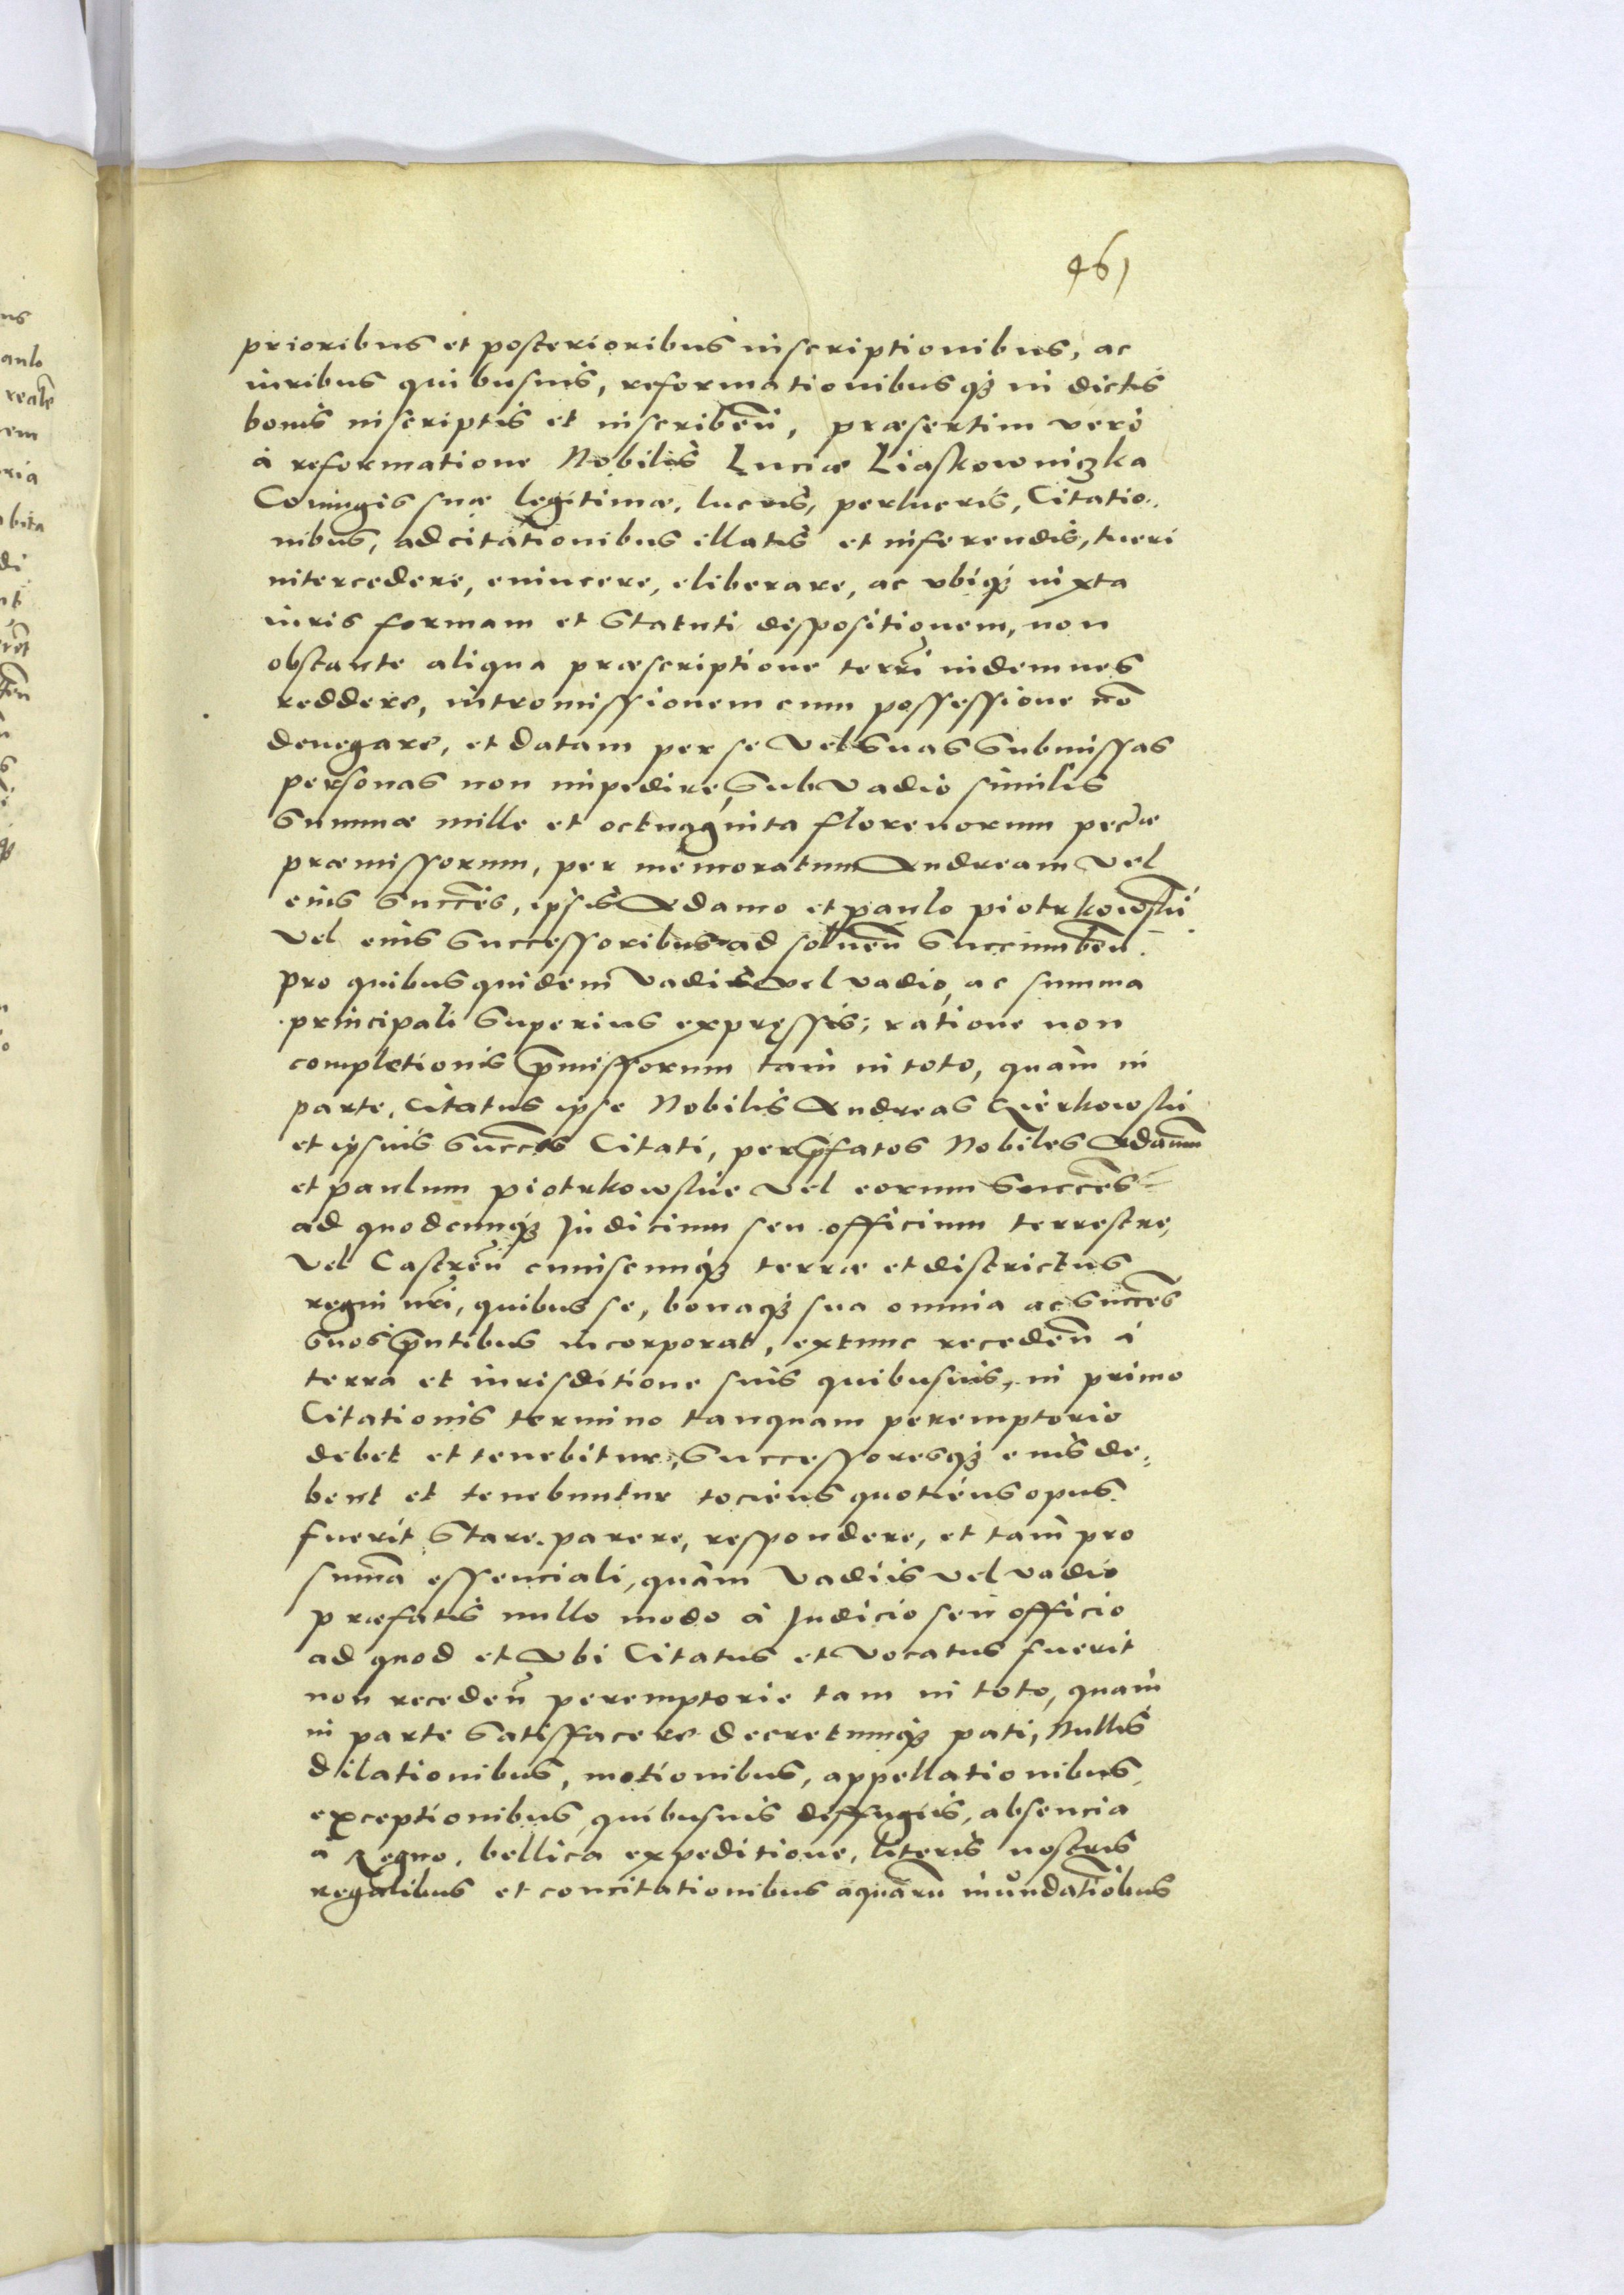 461
prioribus et posterioribus inscriptionibus, ac
iuribus quibusuis, reformationibusq3 in dictis
bonis inscriptis et inscriben̄, præsertim vero
à reformatione Nobilis Luciæ Liaskowniczka
Coniugis suæ legitimæ, lucris, perlucris, Citatio-
nibus, adcitationibus illatis et inferendis, tueri
intercedere, euincere, eliberare, ac vbiq3 iuxta
iuris formam et Statuti dispositionem, non
obstante aliqua præscriptione terri indemnes
reddere, intromissionem cum possessione nō
denegare, et datam per se vel Suas Submissas
personas non impedire, Sub vadio similis
Summæ mille et octuaginta florenorum pecæ
præmissorum, per memoratum Andream vel
eius Succes, ipsis Adamo et paulo piotrkowski
vel eius Successoribus ad soluen̄ Succumben̄.
pro quibus quidem vadiis vel vadio, ac summa
principali Superius expressis, ratione non
completionis p̄missorum tam in toto, quàm in
parte, Citatus ipse Nobilis Andreas Czierkowski
et ipsius Succes Citati, per p̄fatos Nobiles Adamum
et paulum piotrkowskie vel eorum Succes
ad quodcunq3 Judicium seu officium terrestre,
vel Castren̄ cuiuscunq3 terræ et districtus
regni nri, quibus se, bonaq3 sua omnia ac Succes
Suos p̄ntibus incorporat, extunc receden̄ à
terra et iurisditione suis quibusuis, in primo
Citationis termino tanquam peremptorio
debet et tenebitur, Successoresq3 eius de-
bent et tenebuntur tociens quotiens opus
fuerit Stare, parere, respondere, et tam pro
summa essenciali, quàm vadiis vel vadio
præfatis nullo modo à Judicio seu officio
ad quod et vbi Citatus et vocatus fuerit
non receden̄ peremptorie tam in toto, quàm
in parte Satisfacere decretumq3 pati, Nullis
dilationibus, motionibus, appellationibus,
exceptionibus, quibusuis diffugiis, absencia
à Regno, bellica expeditione, literis nostris
regalibus et concitationibus aquarū inundatiōbus